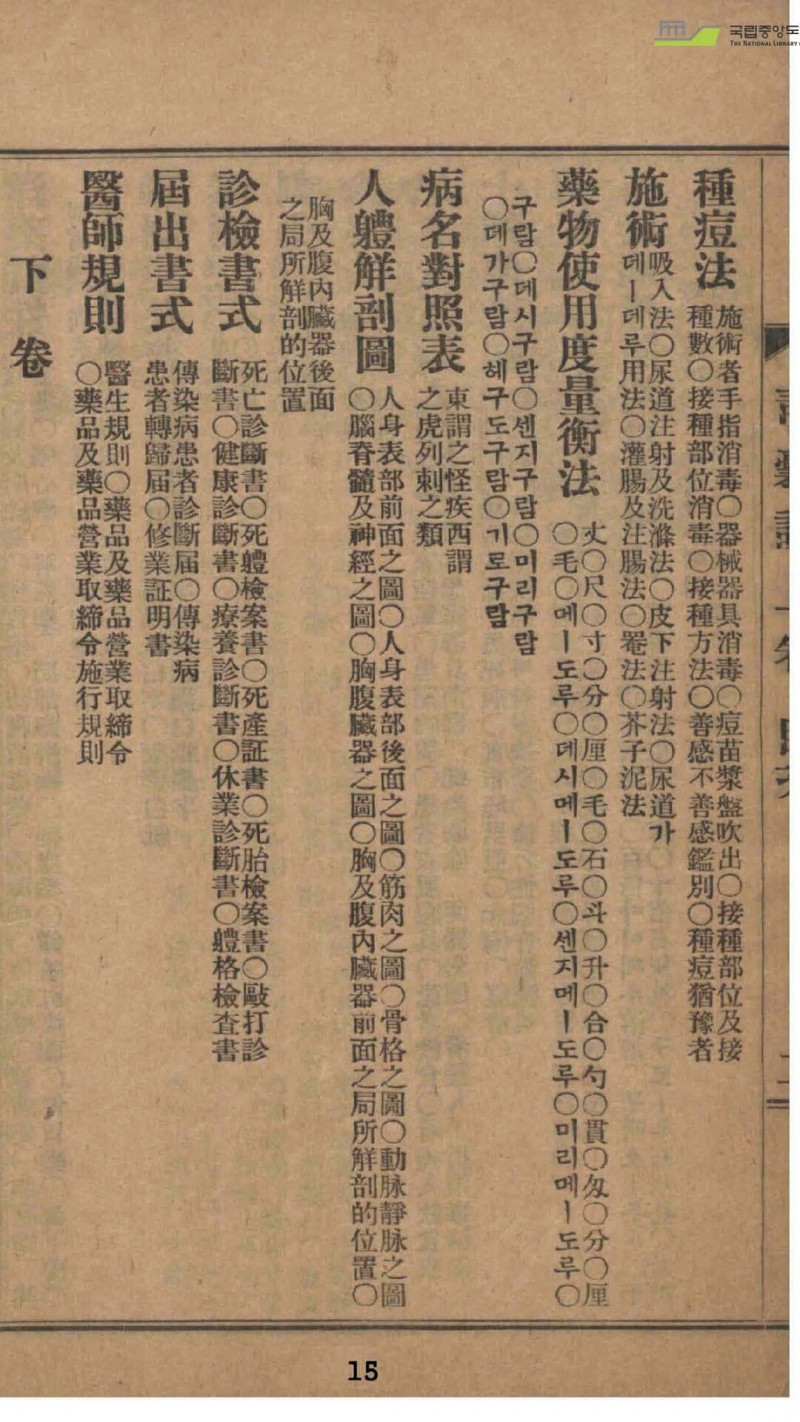 국립중앙도
THE NATIONAL LIBRARY
種痘法
施術者手指消毒〇器械器具消毒〇痘苗漿盤吹出〇接種部位及接
種數〇接種部位消毒〇接種方法〇善感不善感鑑別〇種痘猶豫者
施術
吸入法〇尿道注射及洗滌法〇皮下注射法〇尿道가
데ー데루用法〇灌腸及注腸法〇罨法〇芥子泥法
藥物使用度量衡法
丈〇尺〇寸〇分〇厘〇毛〇石〇斗〇升〇合〇勺〇貫〇匁〇分〇厘
〇毛〇메ー도루〇데시메ー도루〇센지메ー도루〇미리메ー도루〇
구람〇데시구람〇센지구람〇미리구람
〇데가구람〇헤구도구람〇기로구람
病名對照表
東謂之怪疾西謂
之虎列剌之類
人軆解剖圖
人身表部前面之圖〇人身表部後面之圖〇筋肉之圖〇骨格之圖〇動脉靜脉之圖
〇腦脊髓及神經之圖〇胸腹臟器之圖〇胸及腹內臟器前面之局所解剖的位置〇
胸及腹內臟器後面
之局所解剖的位置
診檢書式
死亡診斷書〇死軆檢案書〇死產証書〇死胎檢案書〇毆打診
斷書〇健康診斷書〇療養診斷書〇休業診斷書〇軆格檢查書
屆出書式
傳染病患者診斷届〇傳染病
患者轉歸届〇修業証明書
醫師規則
醫生規則〇藥品及藥品營業取締令
〇藥品及藥品營業取締令施行規則
下卷
15